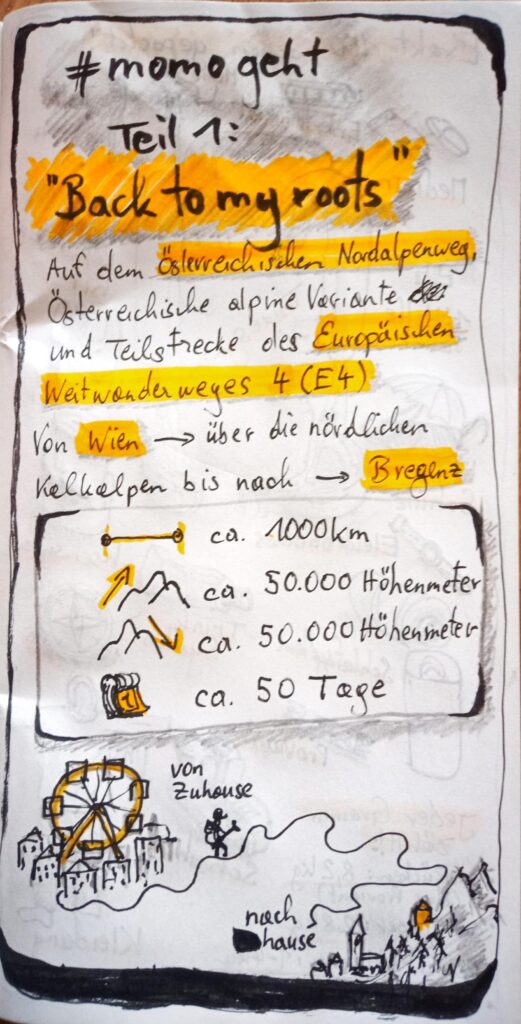 #momo geht
Teil 1:
"Back to my roots"
Auf dem Österreichischen Nordalpenweg,
Österreichische alpine Variante
und Teilstrecke des Europäischen
Weitwanderweges 4 (E4)
Von Wien → über die nördlichen
Kalkalpen bis nach → Bregenz
ca. 1000km
ca. 50.000 Höhenmeter
ca. 50.000 Höhenmeter
ca. 50 Tage
von
Zuhause
nach
hause